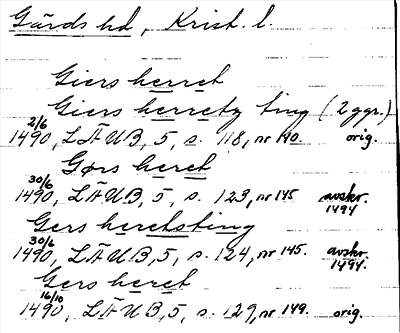 Gärds hd, Krist. l.
Giers herret
Giers herretz ting (2 ggr.)
2/6
1490, LÄUB, 5, s. 118, nr 140. orig.
Gørs heret
30/6
1490, LÄUB, 5, s. 123, nr 145 avskr. 1494
Gers heretsting
30/6
1490, LÄUB, 5, s. 124, nr 145. avskr. 1494.
Gers heret
16/10
1490, LÄUB, 5, s. 129, nr 149. orig.